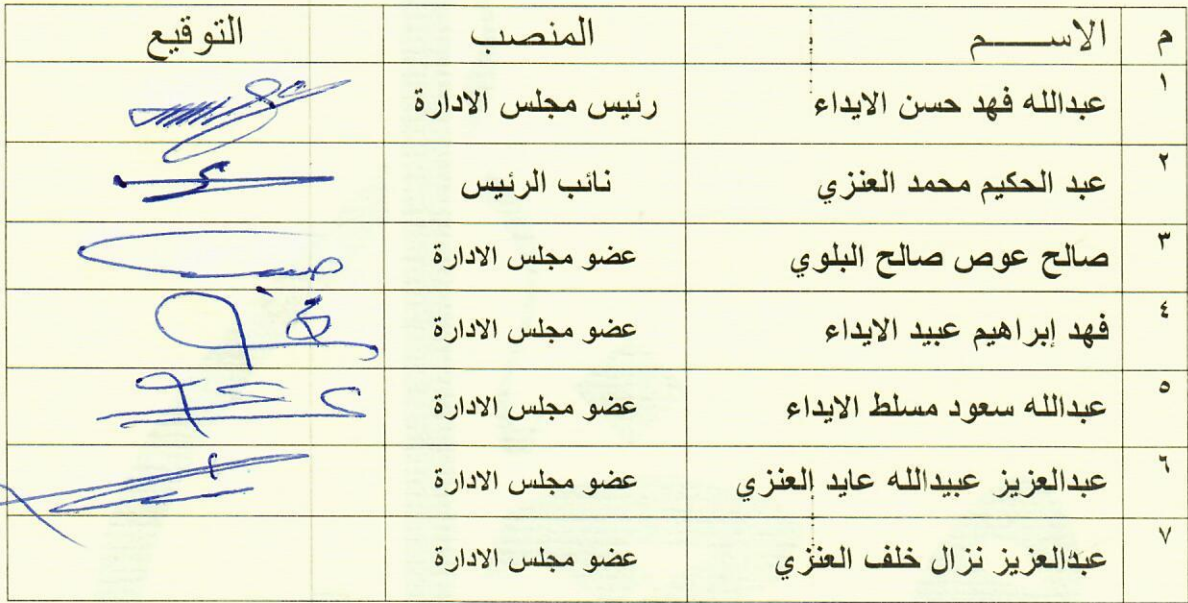 م الاســـــم المنصب التوقيع
١ عبدالله فهد حسن الايداء رئيس مجلس الادارة
٢ عبد الحكيم محمد العنزي نائب الرئيس
٣ صالح عوص صالح البلوي عضو مجلس الادارة
٤ فهد إبراهيم عبيد الايداء عضو مجلس الادارة
٥ عبدالله سعود مسلط الايداء عضو مجلس الادارة
٦ عبدالعزيز عبيدالله عايد العنزي عضو مجلس الادارة
٧ عبدالعزيز نزال خلف العنزي عضو مجلس الادارة